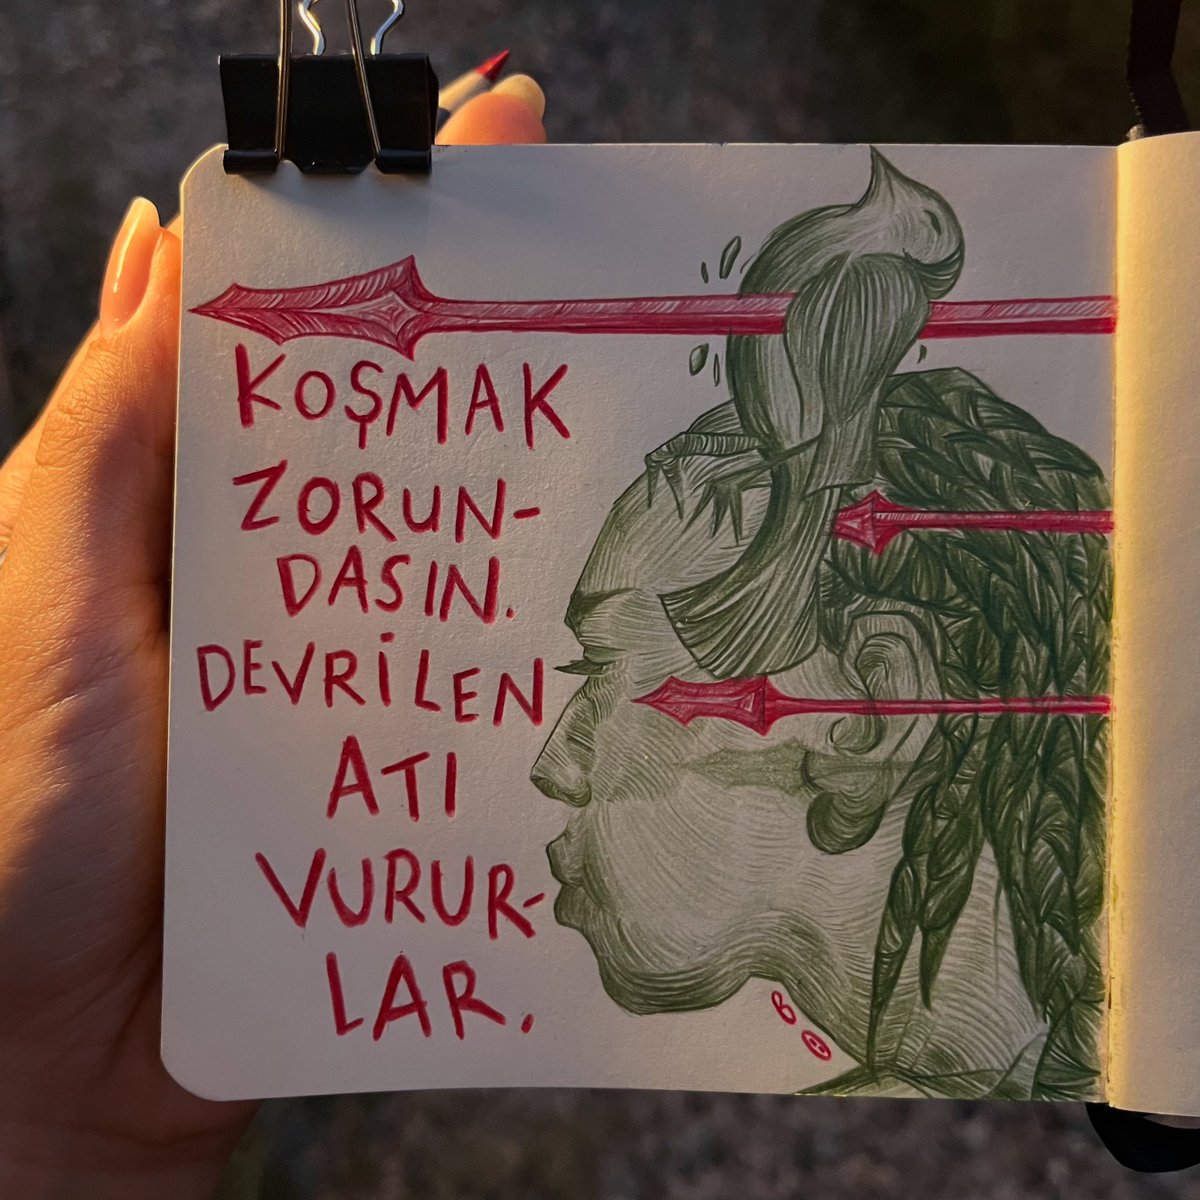 KOŞMAK
ZORUN-
DASIN.
DEVRİLEN
ATI
VURUR-
LAR.